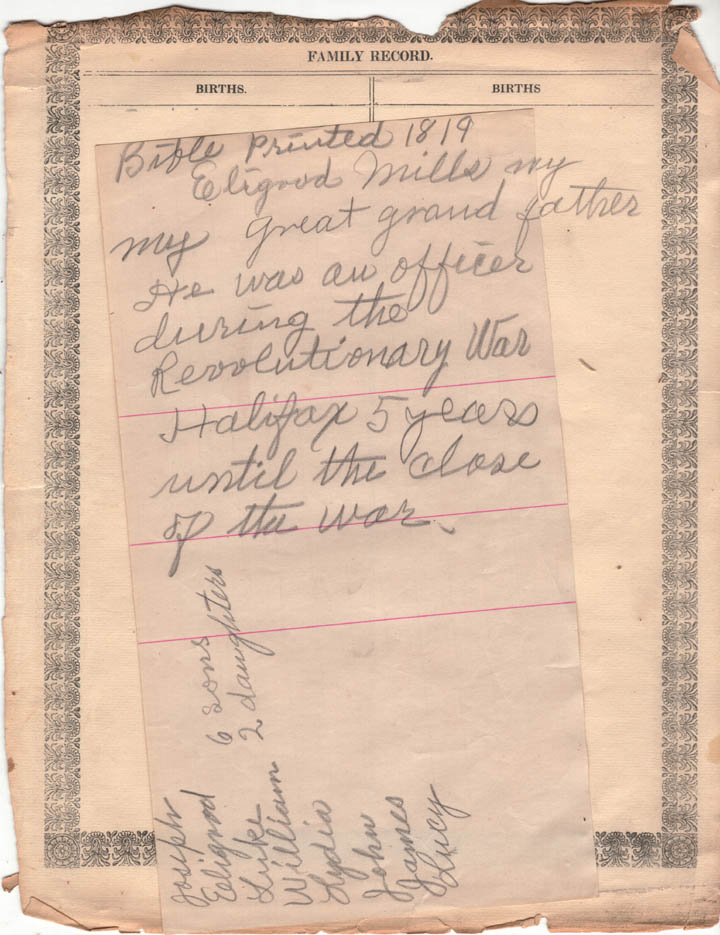 FAMILY RECORD.
BIRTHS.
BIRTHS
Bible Printed 1819
Eligood Mills my
my great grand father
He was an officer
during the
Revolutionary War
Halifax 5 years
until the close
of the war.
6 sons
2 daughters
Joseph
Eligood
Luke
William
Lydia
John
James
Lucy